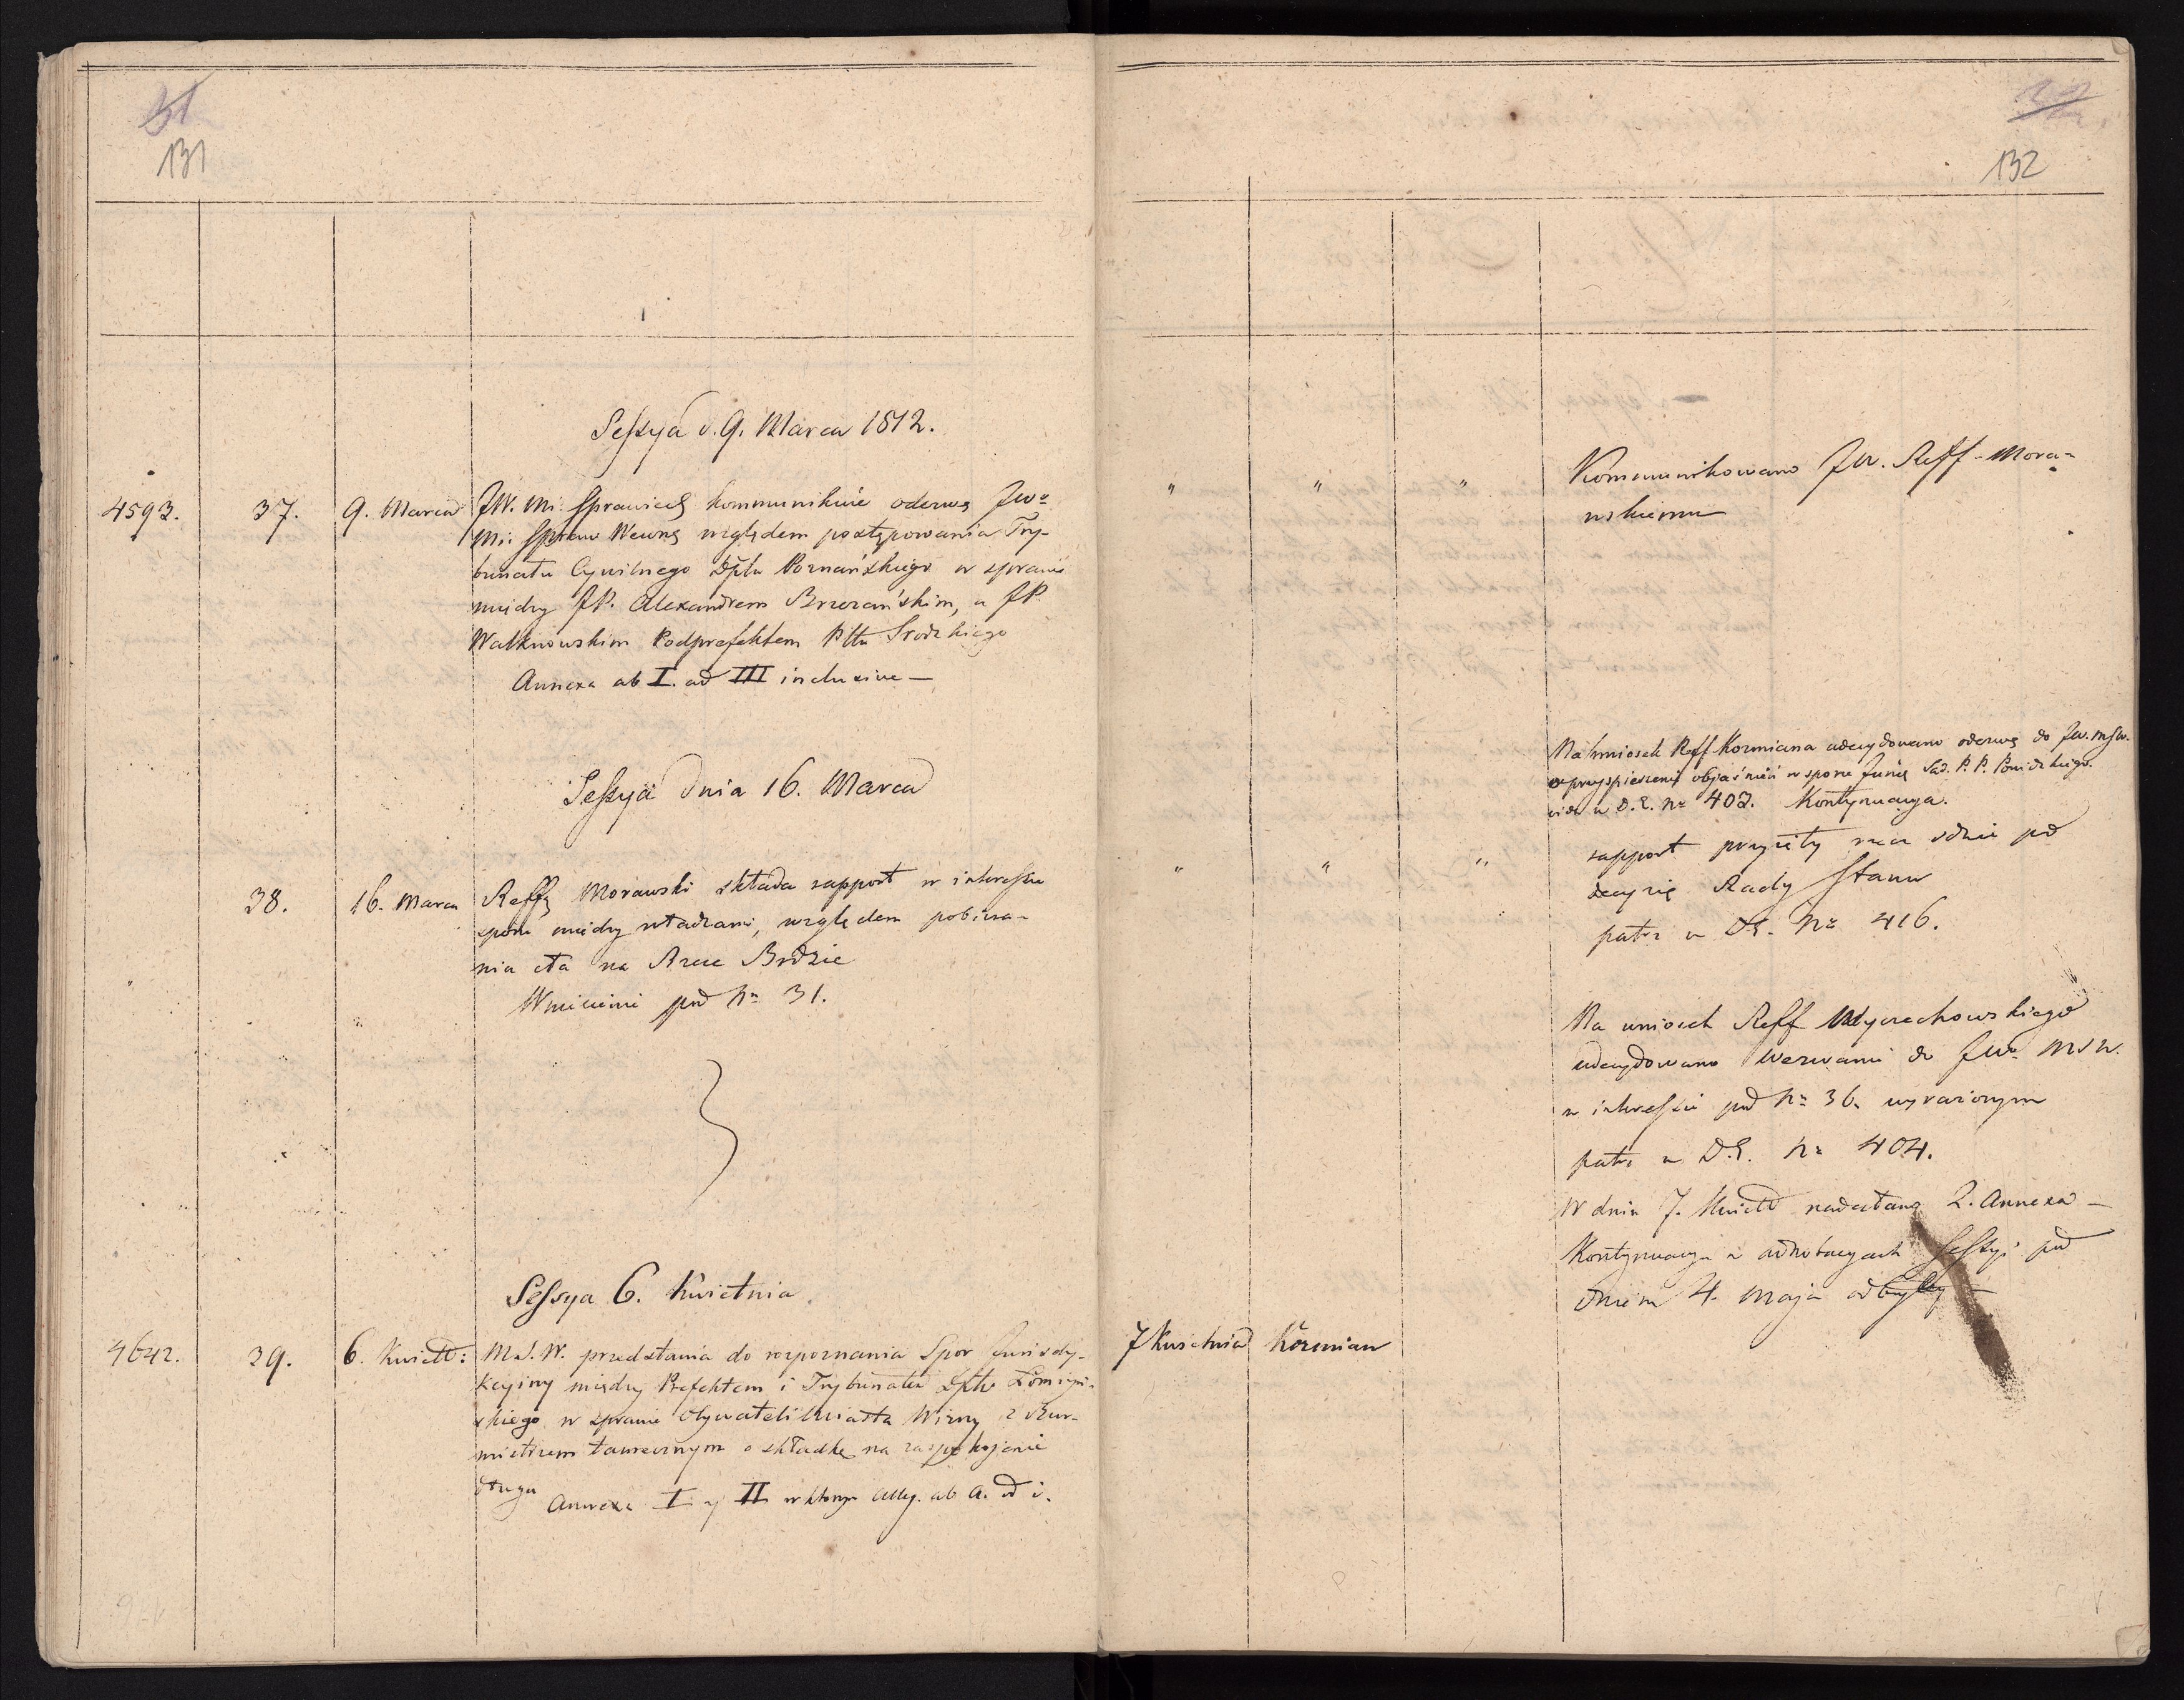 131
Sessya d. 9. Marca 1812.
4593. 37. 9. Marca JW. Mi. Sprawied. kommunikuie odezwę JWo
Mi. Spraw Wewnę względem postępowania Try-
bunału Cywilnego Dptu Poznańskiego w sprawie
między JP. Alexandrem Brzezańskim, a JP.
Walknowskim Podprefektem Pttu Srodzkiego
Annexa ab I. ad III inclusive —
Sessya dnia 16. Marca
38. 16. Marca Reff. Morawski składa rapport w interessie
sporu między władzami, względem pobiera-
nia cła na Rzece Brdzie
Wniesienie pod No 31.
Sessya 6. Kwietnia
4642. 39. 6. Kwiet: M.S.W. przedstawia do rozpoznania Spor Jurisdy-
kcyiny między Prefektem i Trybunałem Dptu Łomżyń-
skiego w sprawie Obywateli Miasta Wizny z Bur-
mistrzem tamecznym o składkę na zaspokojenie
długu
Annexa I. y II. w którym alleg. ab a. ad i.
132
" " " Kommunikowano JW. Reff. Mora-
wskiemu
Na wniosek Reff Kozmiana udecydowano odezwę do JW. MSW.
o przyspieszenie objaśnień w sporze Juris. Sąd. P. P. Powidzkiego.
vide w D.E. No 402. Kontynuacya.
" " " rapport przyięty pod
decyzię Rady Stanu
patrz w DE. No 416.
Na wniosek Reff Wyczechowskiego
udecydowano Wezwanie do JWo MSW.
w interessie pod No 36. wyrażonym
patrz w D.E. No 404.
7 Kwietnia Kozmian
W dniu 7. Kwiet nadesłano 2. Annexa —
Kontynuacya w adnotacyach Sessyi pod
dniem 4. Maja odbytey —